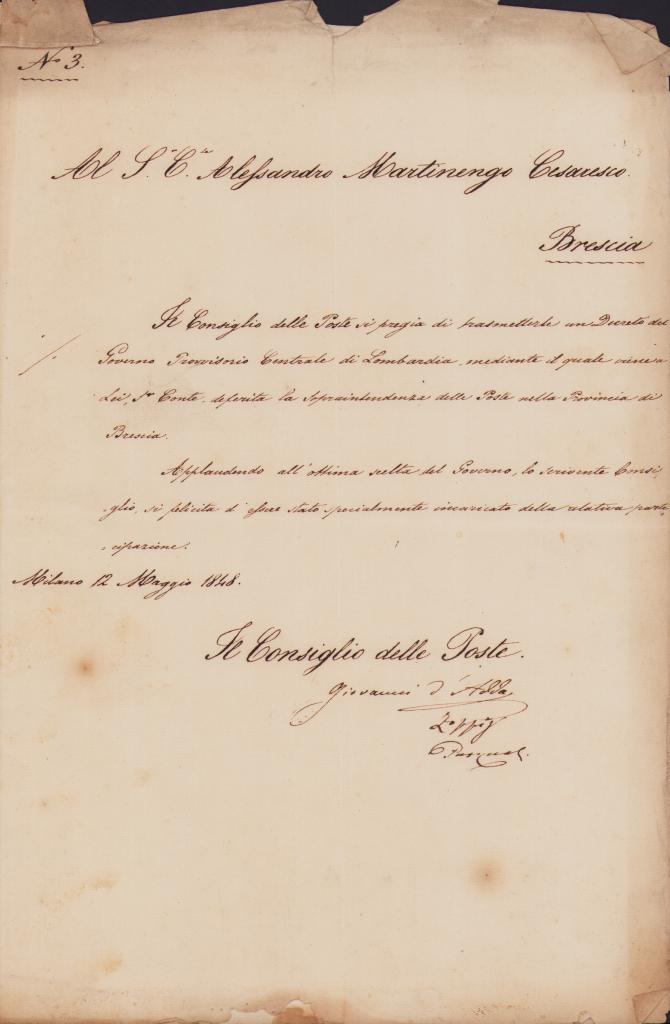 N.º 3.
Al S.r C.te Alessandro Martinengo Cesaresco.
Brescia
Il Consiglio delle Poste si pregia di trasmetterle un Decreto del
Governo Provvisorio Centrale di Lombardia, mediante il quale viene a
Lei, S.r Conte, deferita la Sopraintendenza delle Poste nella Provincia di
Brescia.
Applaudendo all'ottima scelta del Governo, lo scrivente Consi-
glio, si felicita d'essere stato specialmente incaricato della relativa parte-
cipazione.
Milano 12 Maggio 1848.
Il Consiglio delle Poste.
Giovanni d'Adda